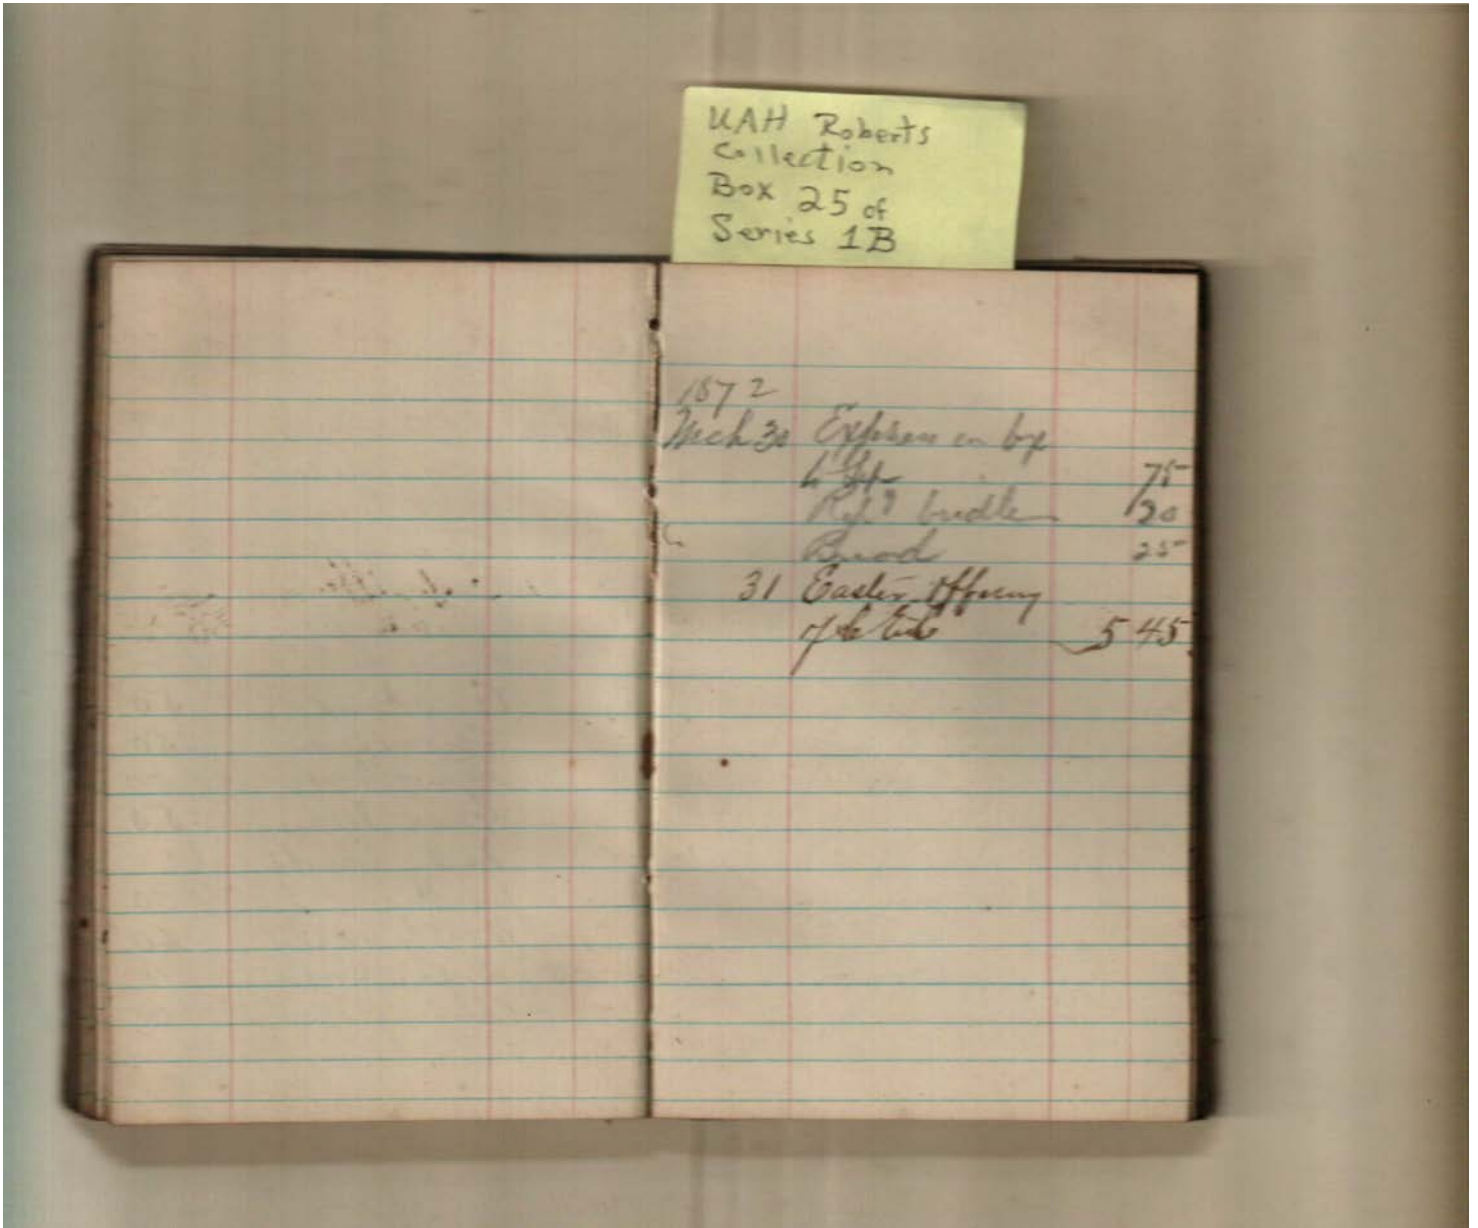 UAH Roberts
Collection
Box 25 of
Series 1B
1872
Mch 30 Express on bx
75
bridle 20
Bread 25
31 Easter Offering
5 45